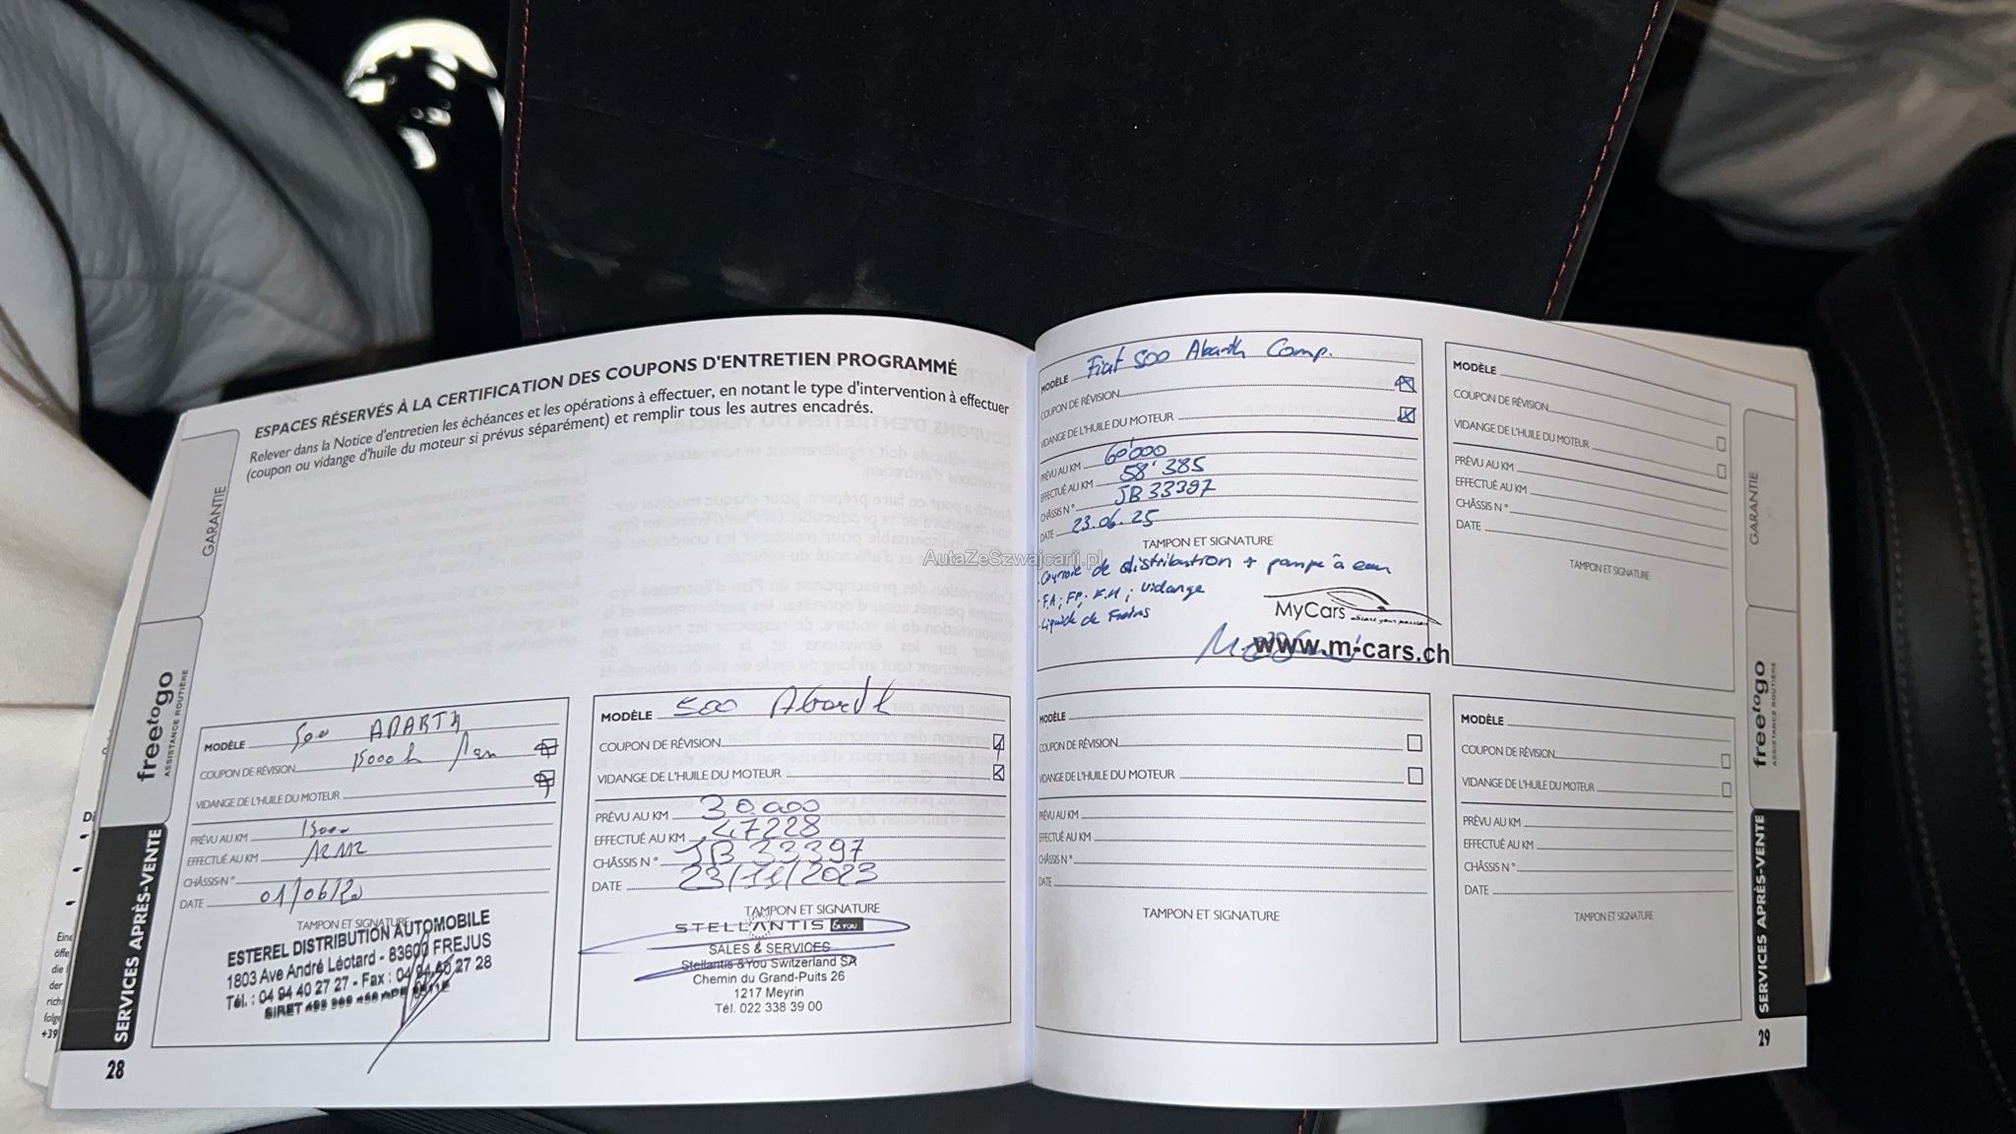 ESPACES RÉSERVÉS À LA CERTIFICATION DES COUPONS D'ENTRETIEN PROGRAMMÉ
Relever dans la Notice d'entretien les échéances et les opérations à effectuer, en notant le type d'intervention à effectuer
(coupon ou vidange d'huile du moteur si prévus séparément) et remplir tous les autres encadrés.
GARANTIE
freetogo
ASSISTANCE ROUTIÈRE
SERVICES APRÈS-VENTE
28
MODÈLE 500 ABARTH
COUPON DE RÉVISION 15000 /1an
VIDANGE DE L'HUILE DU MOTEUR
PRÉVU AU KM 15000
EFFECTUÉ AU KM
CHÂSSIS N°
DATE 01/06/20
TAMPON ET SIGNATURE
ESTEREL DISTRIBUTION AUTOMOBILE
1803 Ave André Léotard - 83600 FREJUS
Tél. : 04 94 40 27 27 - Fax : 04 94 40 27 28
SIRET
MODÈLE 500 Abarth
COUPON DE RÉVISION
VIDANGE DE L'HUILE DU MOTEUR
PRÉVU AU KM 30000
EFFECTUÉ AU KM 47228
CHÂSSIS N° JB 33397
DATE 23/11/2023
TAMPON ET SIGNATURE
STELLANTIS &YOU
SALES & SERVICES
Stellantis &You Switzerland SA
Chemin du Grand-Puits 26
1217 Meyrin
Tél. 022 338 39 00
MODÈLE Fiat 500 Abarth Comp.
COUPON DE RÉVISION
VIDANGE DE L'HUILE DU MOTEUR
PRÉVU AU KM 60'000
EFFECTUÉ AU KM 58'385
CHÂSSIS N° JB 33397
DATE 23.06.25
TAMPON ET SIGNATURE
AutaZeSzwajcarii.pl
Courroie de distribution + pompe à eau
FA; FP; F.H; Vidange
Liquide de Freins
MyCars
www.m-cars.ch
MODÈLE
COUPON DE RÉVISION
VIDANGE DE L'HUILE DU MOTEUR
PRÉVU AU KM
EFFECTUÉ AU KM
CHÂSSIS N°
DATE
TAMPON ET SIGNATURE
MODÈLE
COUPON DE RÉVISION
VIDANGE DE L'HUILE DU MOTEUR
PRÉVU AU KM
EFFECTUÉ AU KM
CHÂSSIS N°
DATE
TAMPON ET SIGNATURE
MODÈLE
COUPON DE RÉVISION
VIDANGE DE L'HUILE DU MOTEUR
PRÉVU AU KM
EFFECTUÉ AU KM
CHÂSSIS N°
DATE
TAMPON ET SIGNATURE
GARANTIE
freetogo
ASSISTANCE ROUTIÈRE
SERVICES APRÈS-VENTE
29